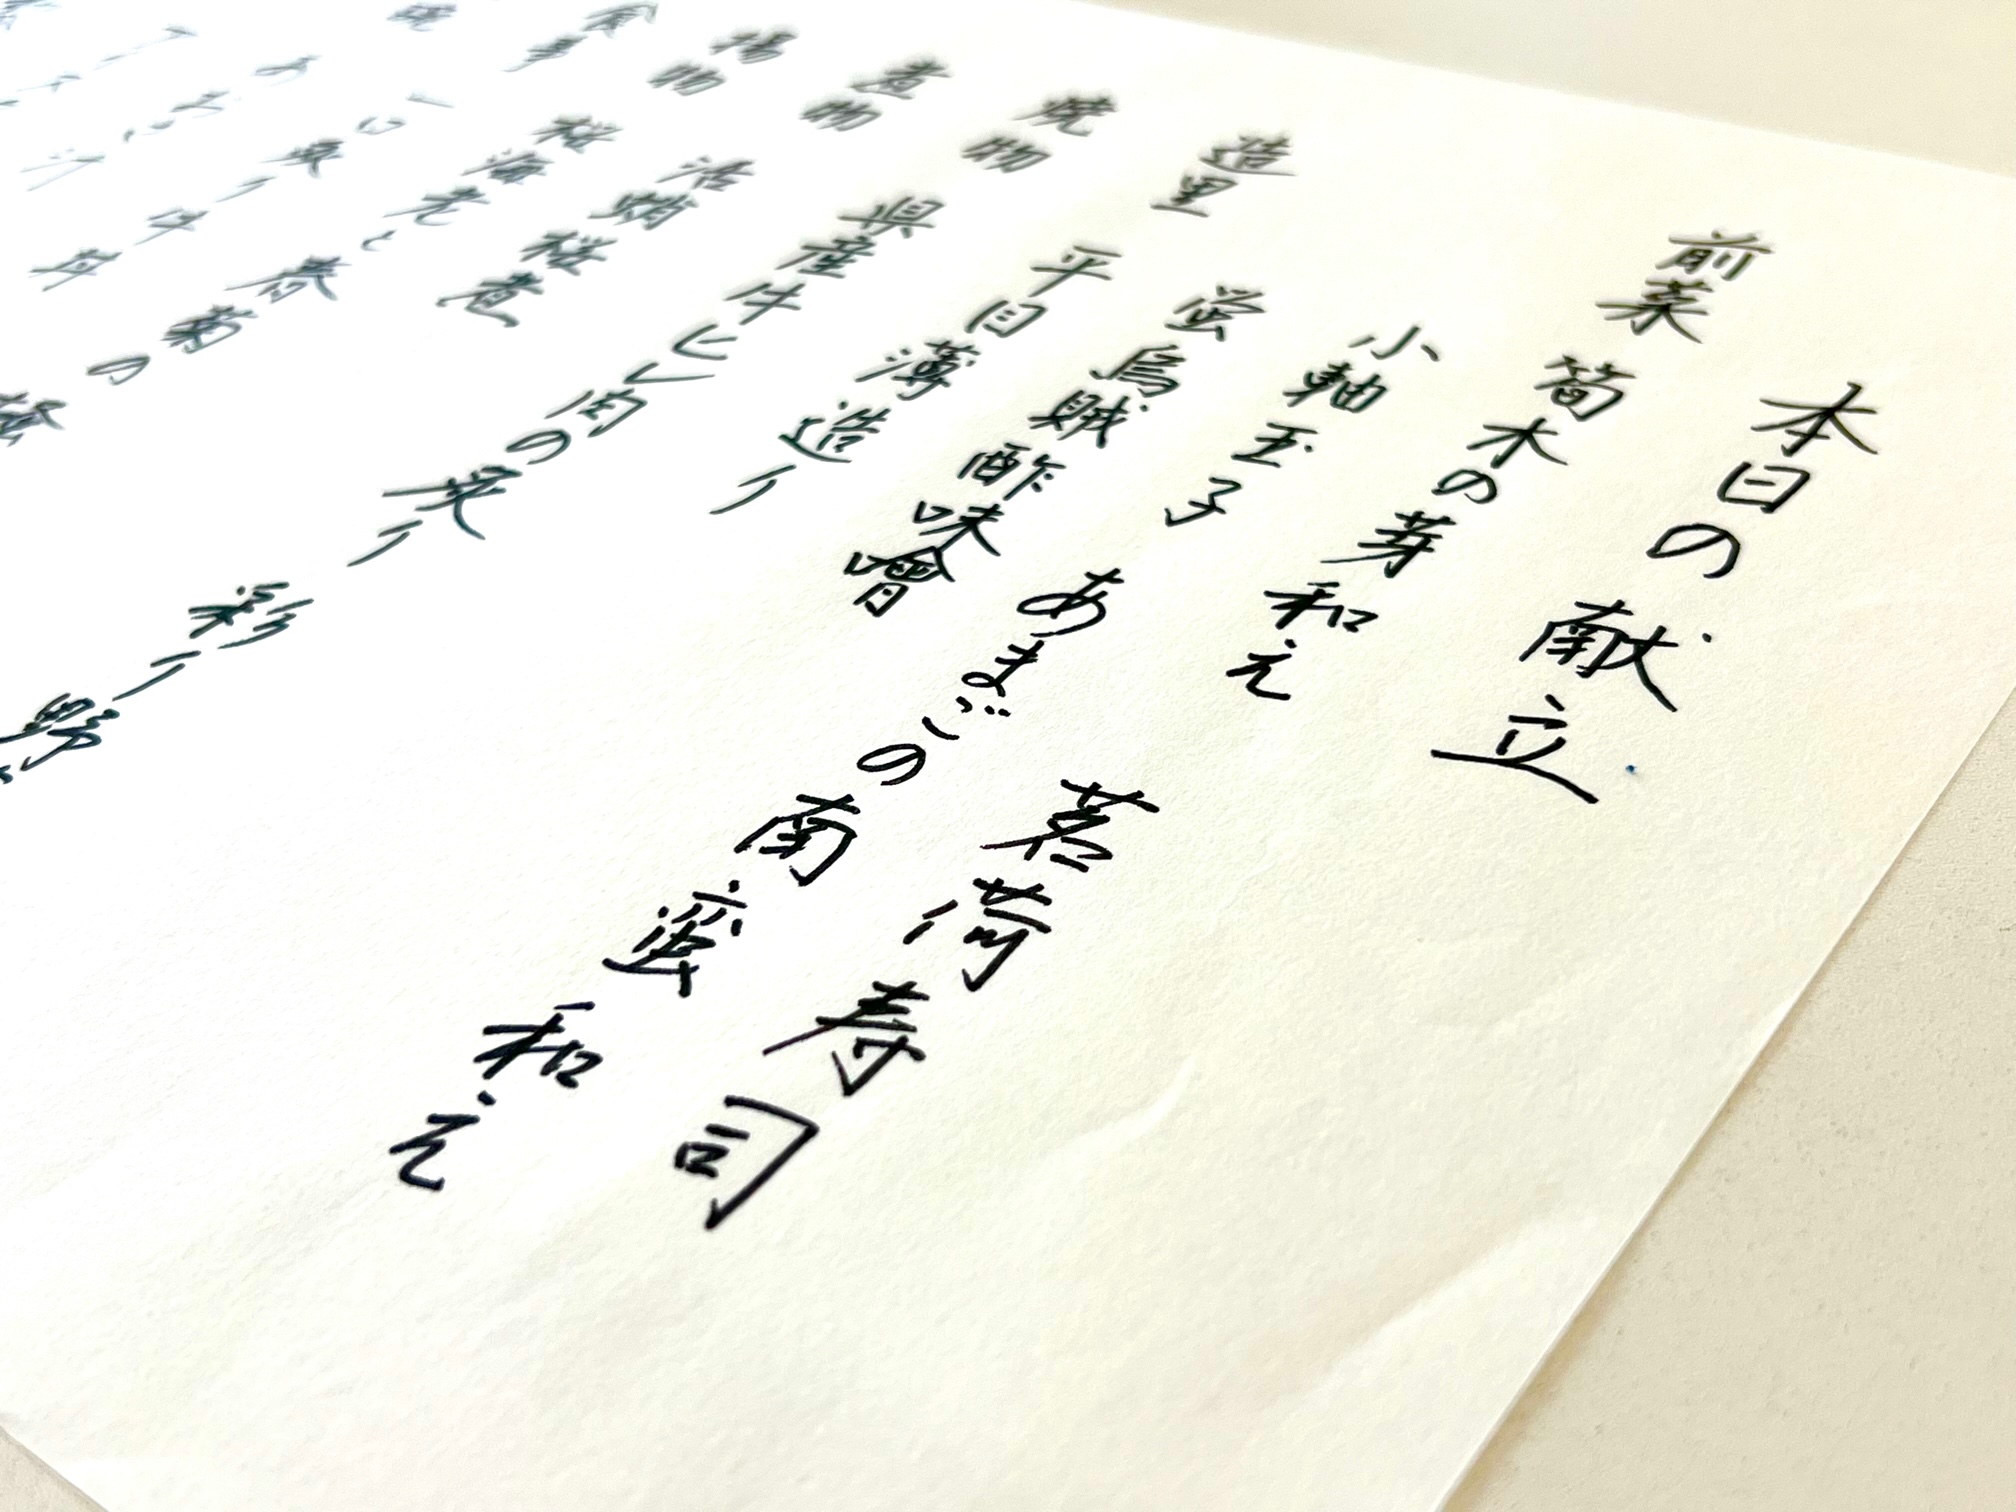 本日の献立
前菜 筍木の芽和え
小軸玉子 茗荷寿司
蛍烏賊酢味噌 あまごの南蛮和え
造里 平目薄造り
焼物 県産牛ヒレ肉の炙り 彩り野
煮物 活蛸桜煮
揚物 桜海老と春菊の
食事 炙り牛丼